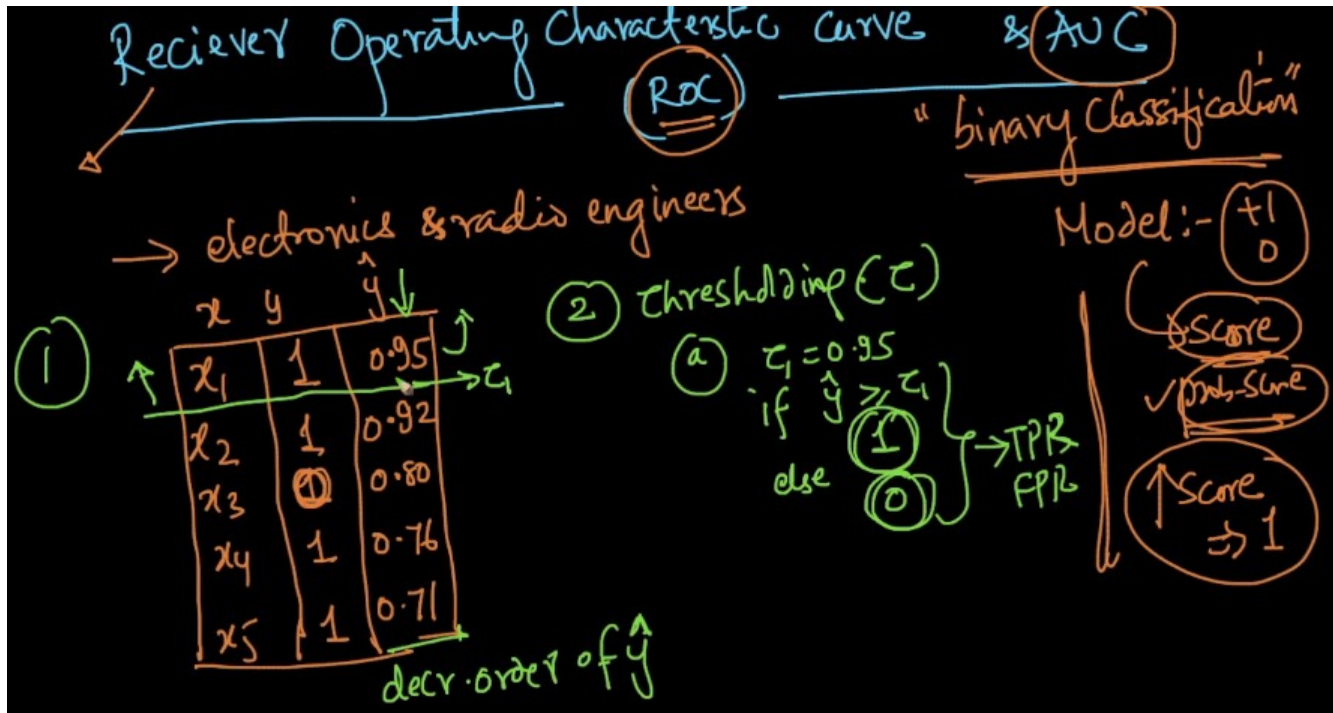 Reciever Operating Characteristic Curve & AUC
(ROC)
"binary Classification"
→ electronics & radio engineers
Model:- +1
0
score
✓ prob-score
↑ Score
⇒ 1
①
x y ŷ
x1 1 0.95 → τ1
x2 1 0.92
x3 0.80
x4 1 0.76
x5 1 0.71
decr. order of ŷ
② Thresholding (τ)
ⓐ τ1 = 0.95
if ŷ ≥ τ1
1
else 0
→ TPR
FPR